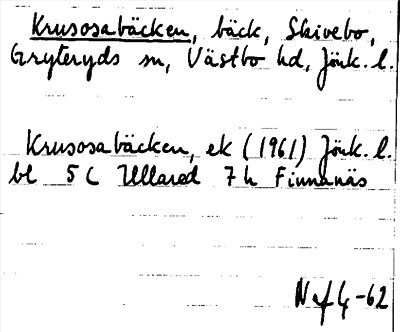 Krusosabäcken, bäck, Skivebo,
Gryteryds sn, Västbo hd, Jönk. l.
Krusosabäcken, ek (1961) Jönk. l.
bl 5 C Ullared 7 h Finnanäs